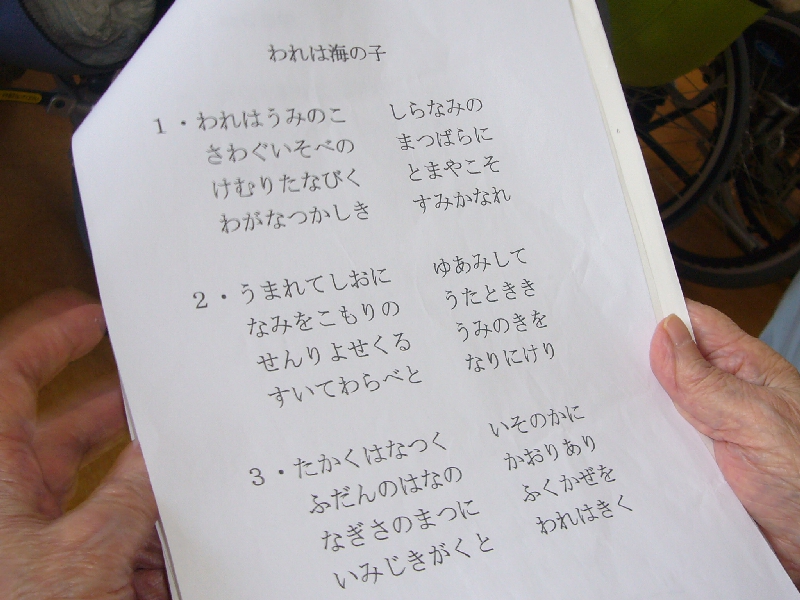 われは海の子
1・われはうみのこ　しらなみの
さわぐいそべの　まつばらに
けむりたなびく　とまやこそ
わがなつかしき　すみかなれ
2・うまれてしおに　ゆあみして
なみをこもりの　うたときき
せんりよせくる　うみのきを
すいてわらべと　なりにけり
3・たかくはなつく　いそのかに
ふだんのはなの　かおりあり
なぎさのまつに　ふくかぜを
いみじきがくと　われはきく